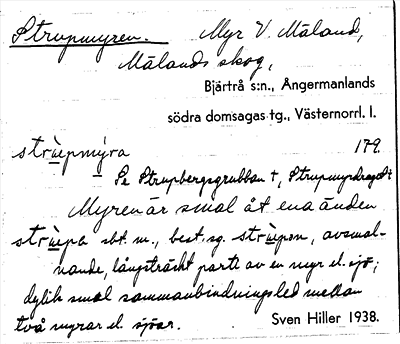 Strupmyren. Myr V. Måland,
Målands skog,
Bjärtrå s:n., Ångermanlands
södra domsagas tg., Västernorrl. l.
strùpmýra 179.
Se Strupbergsgrubban +, Strupmyrdraget
Myren är smal åt ena änden
strùpa sbt. m., best. sg. strùpən, avsmal-
nande, långsträckt parti av en myr el. sjö;
dylik smal sammanbindningsled mellan
två myrar el. sjöar. Sven Hiller 1938.